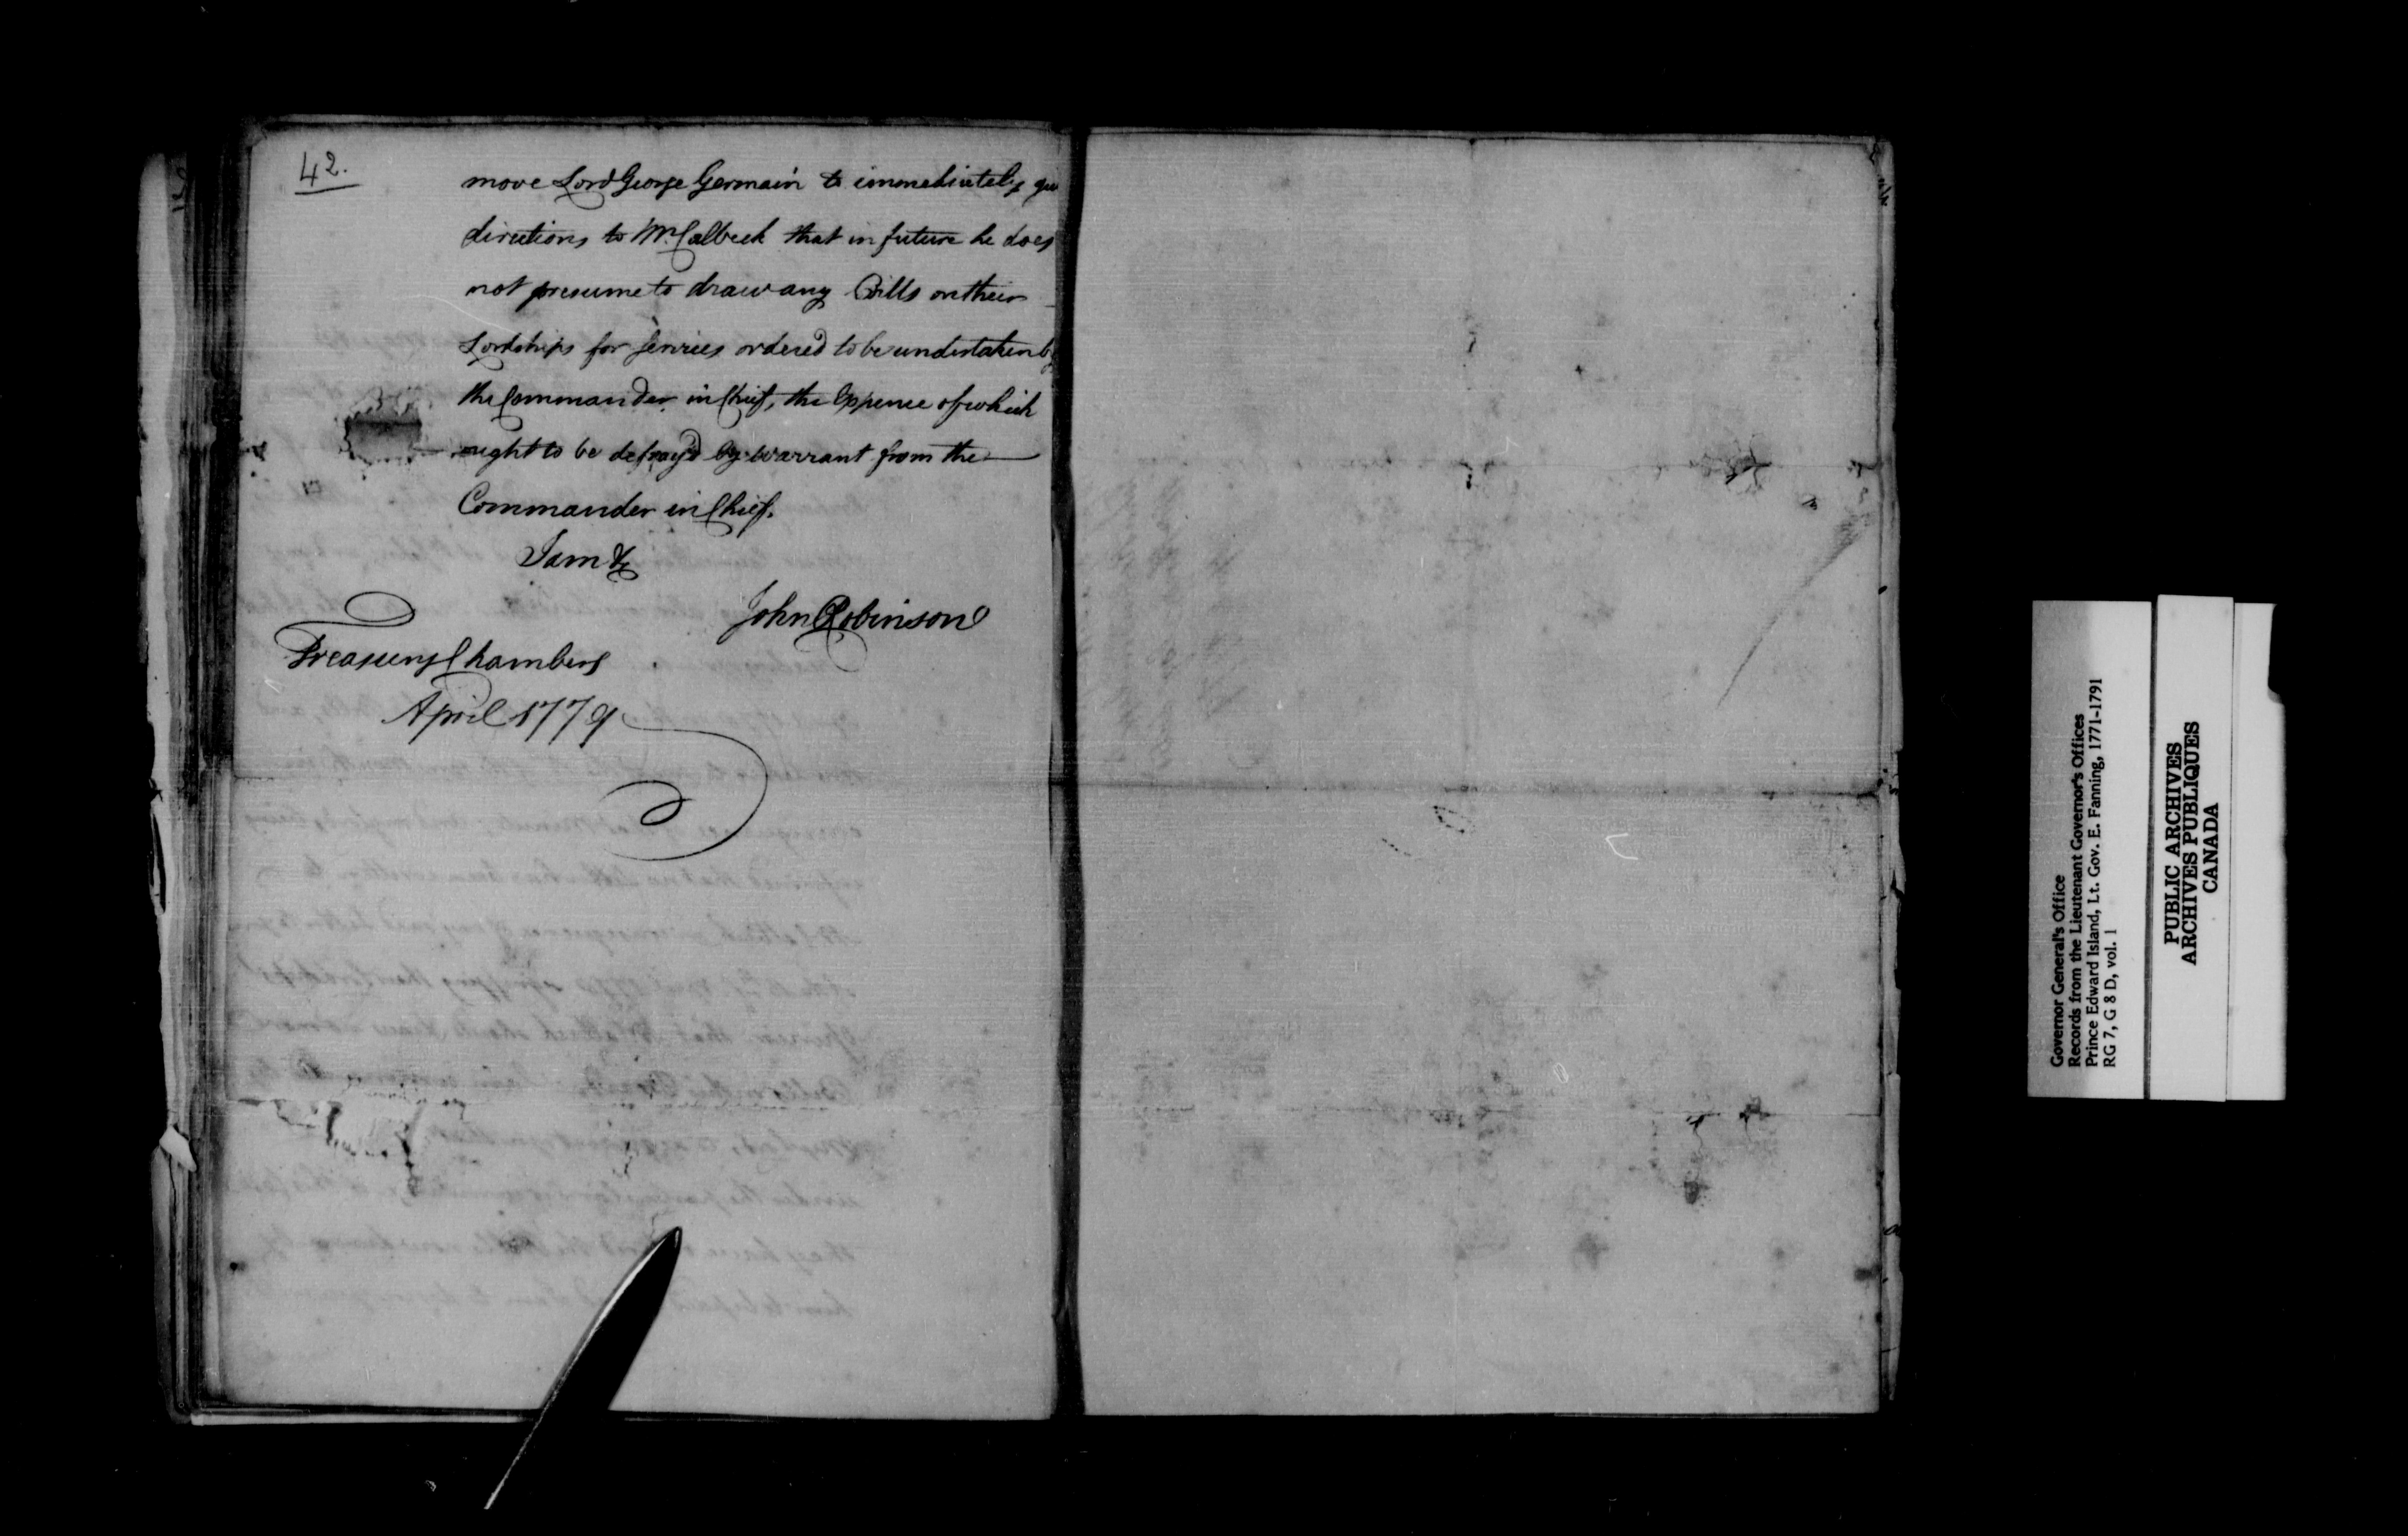 42.
move Lord George Germain to immediately
directions to Mr. Callbeck that in future he does
not presume to draw any Bills on their
Lordships for Services ordered to be undertaken by
the Commander in Chief, the Expence of which
ought to be defray'd by Warrant from the
Commander in Chief.
I am &c
John Robinson
Treasury Chambers
April 1779
Governor General's Office
Records from the Lieutenant Governor's Offices
Prince Edward Island, Lt. Gov. E. Fanning, 1771-1791
RG 7, G 8 D, vol. 1
PUBLIC ARCHIVES
ARCHIVES PUBLIQUES
CANADA